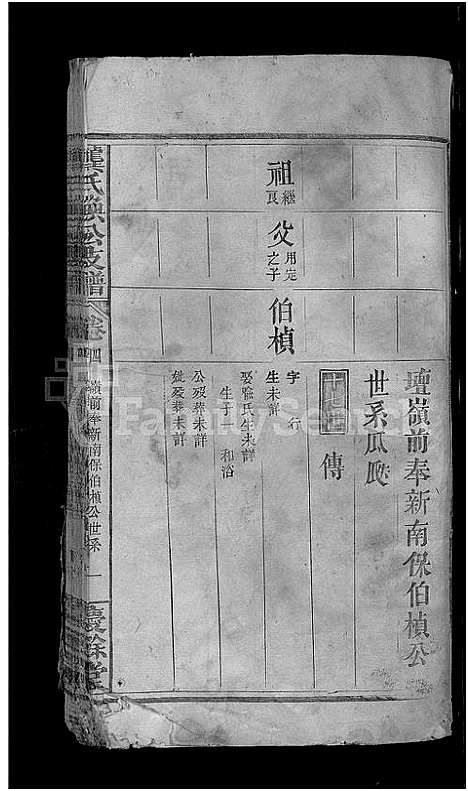 壇嶺前奉新南保伯楨公
世系瓜瓞
十七世 傳
祖 繼良
父 用定之子
伯楨
字 行
生未詳
娶喻氏生未詳
生子一 和浴
公歿葬未詳
妣歿葬未詳
龔氏煥公支譜
卷四
嶺前奉新南保伯楨公世系
一
慶餘堂
FamilySearch